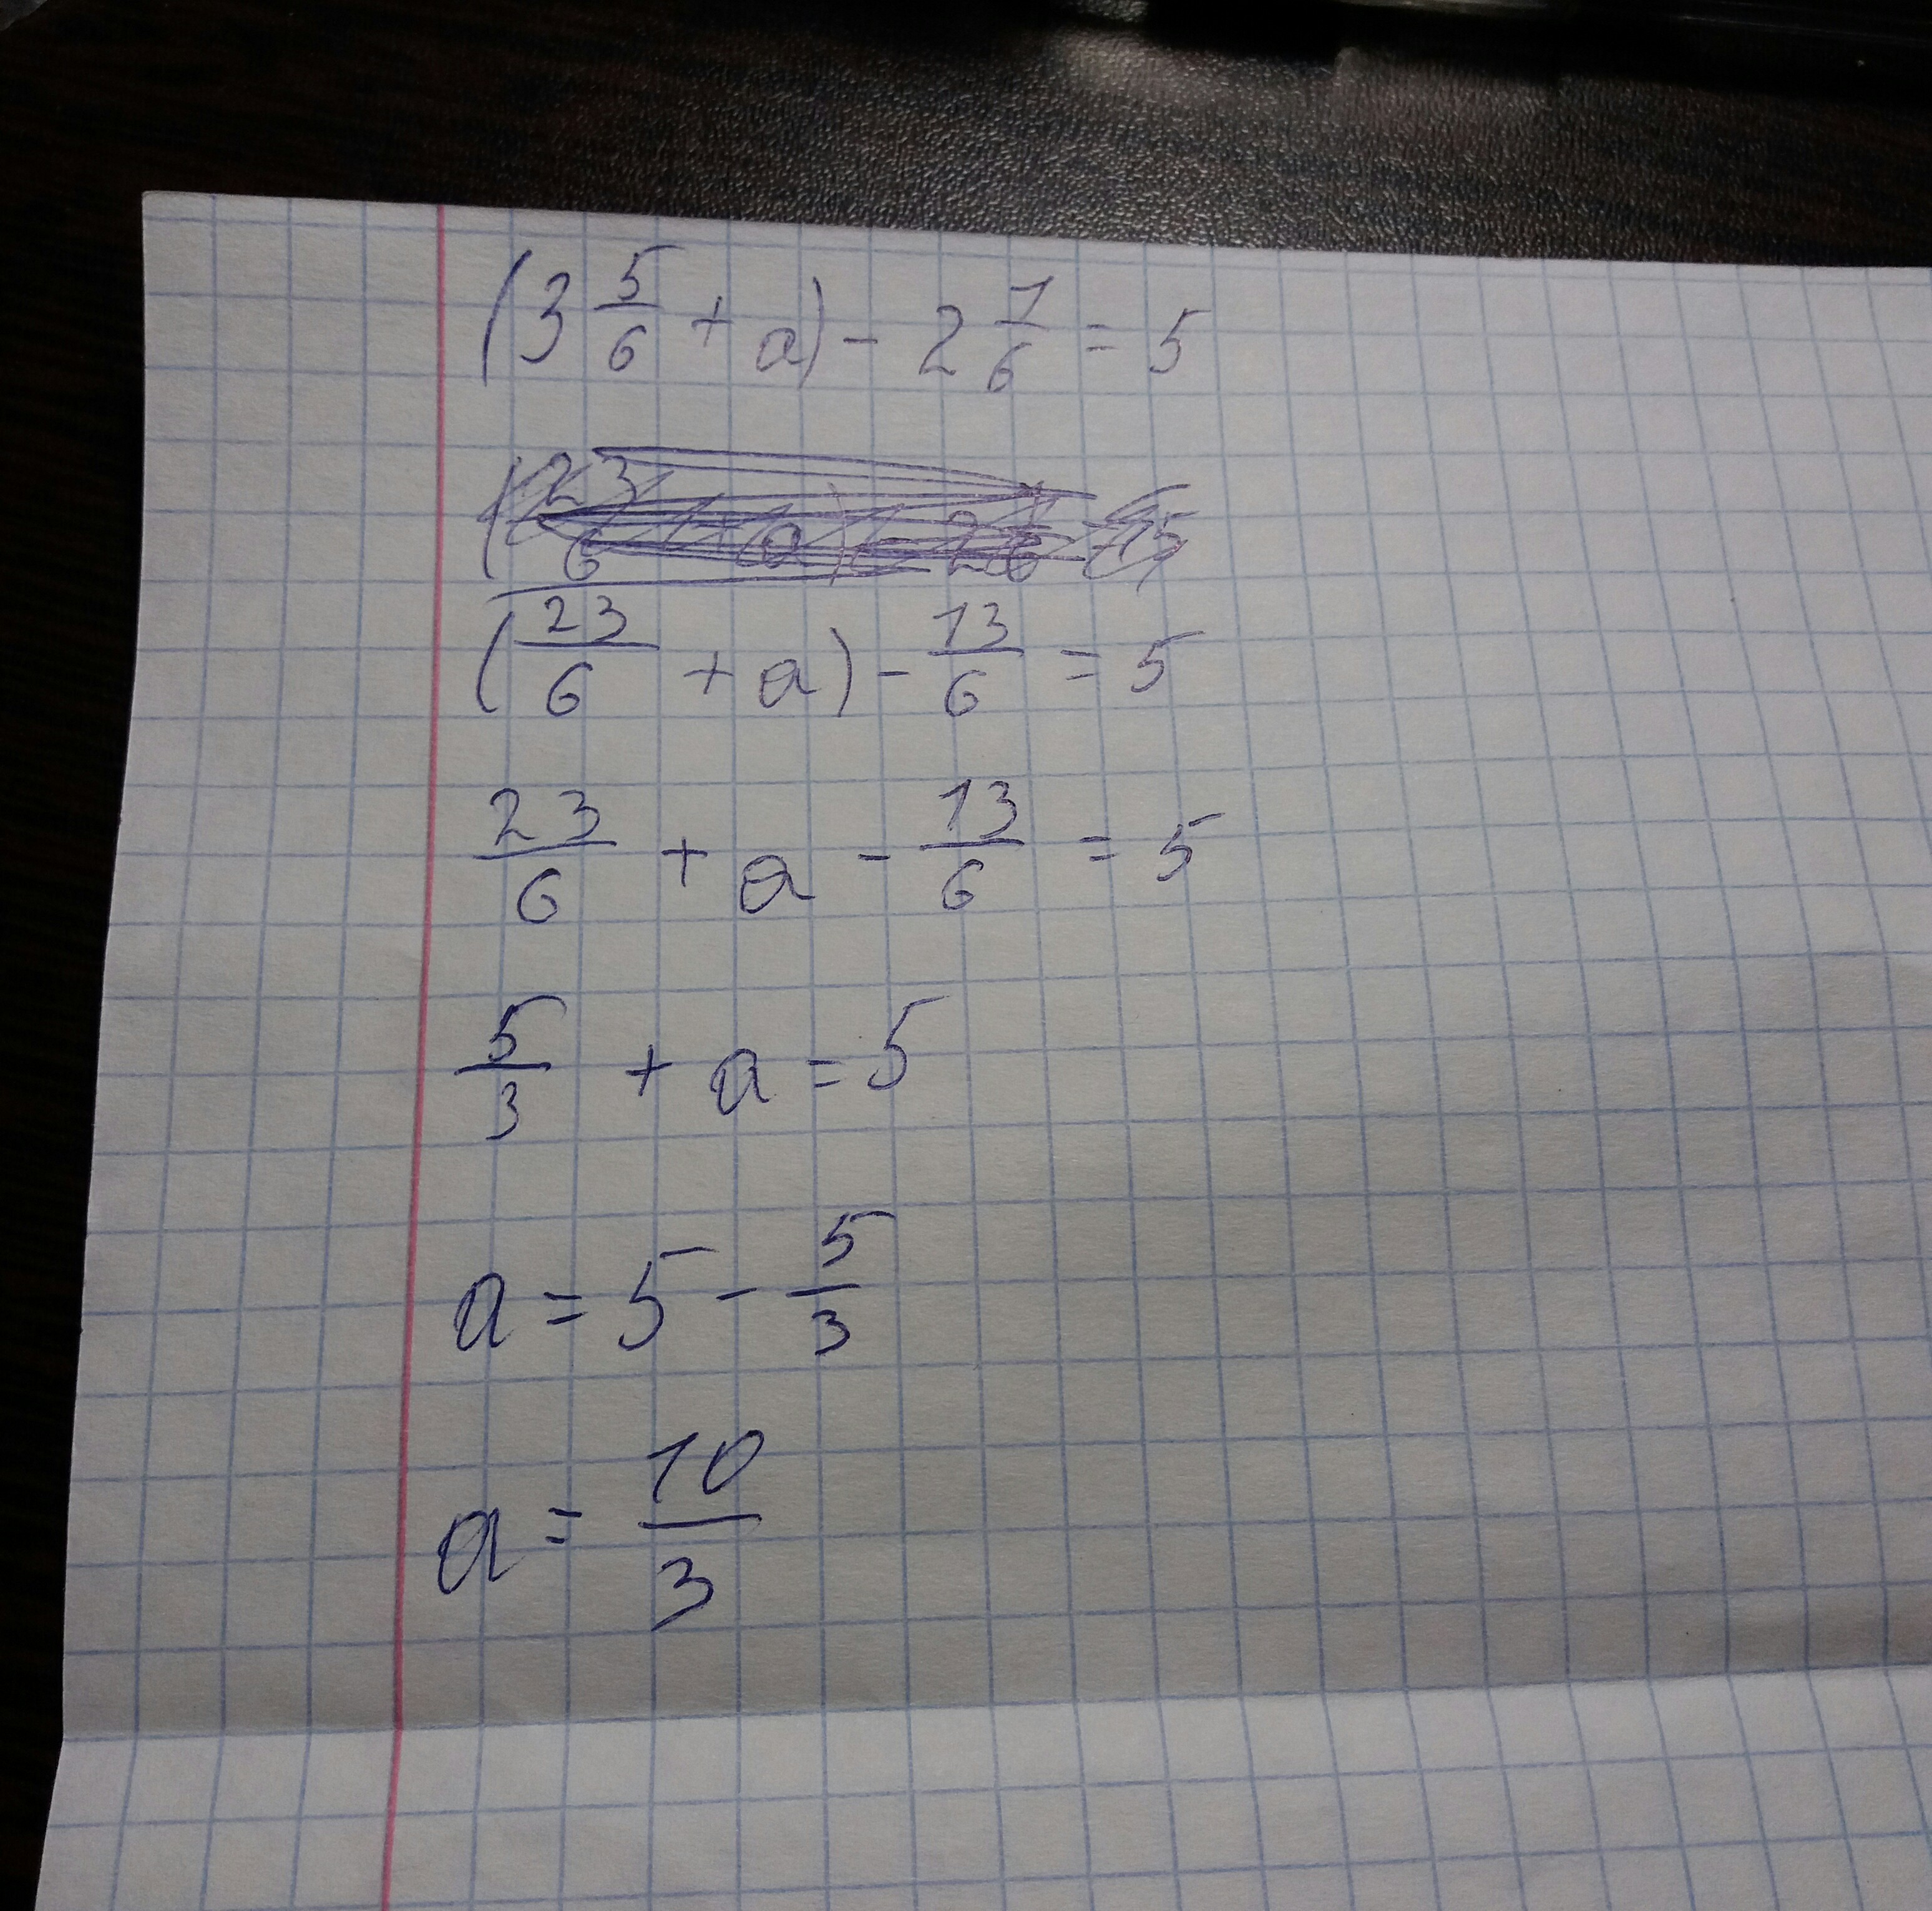 (3 5/6 + a) - 2 1/6 = 5
(23/6 + a) - 13/6 = 5
23/6 + a - 13/6 = 5
5/3 + a = 5
a = 5 - 5/3
a = 10/3